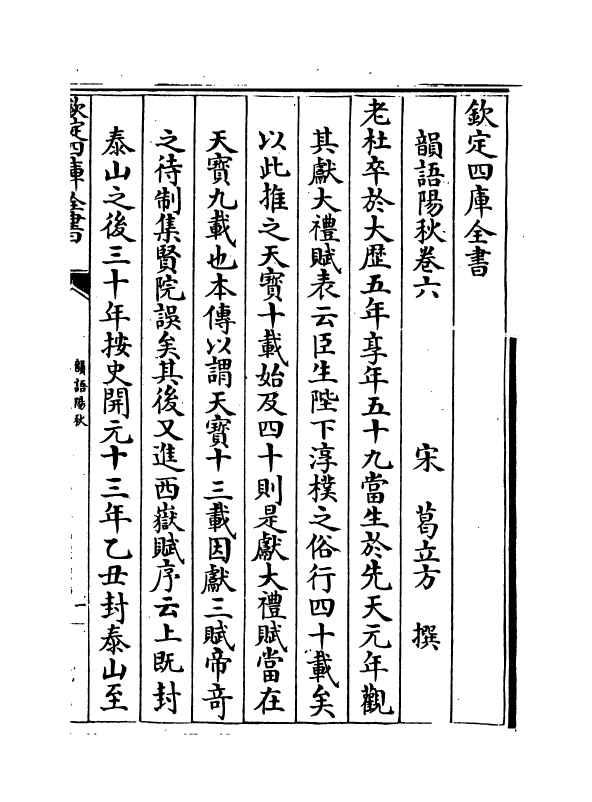 欽定四庫全書
韻語陽秋卷六 宋 葛立方 撰
老杜卒於大歴五年享年五十九當生於先天元年觀
其獻大禮賦表云臣生陛下淳樸之俗行四十載矣
以此推之天寳十載始及四十則是獻大禮賦當在
天寳九載也本傳以謂天寳十三載因獻三賦帝竒
之待制集賢院誤矣其後又進西嶽賦序云上既封
泰山之後三十年按史開元十三年乙丑封泰山至
欽定四庫全書
韻語陽秋